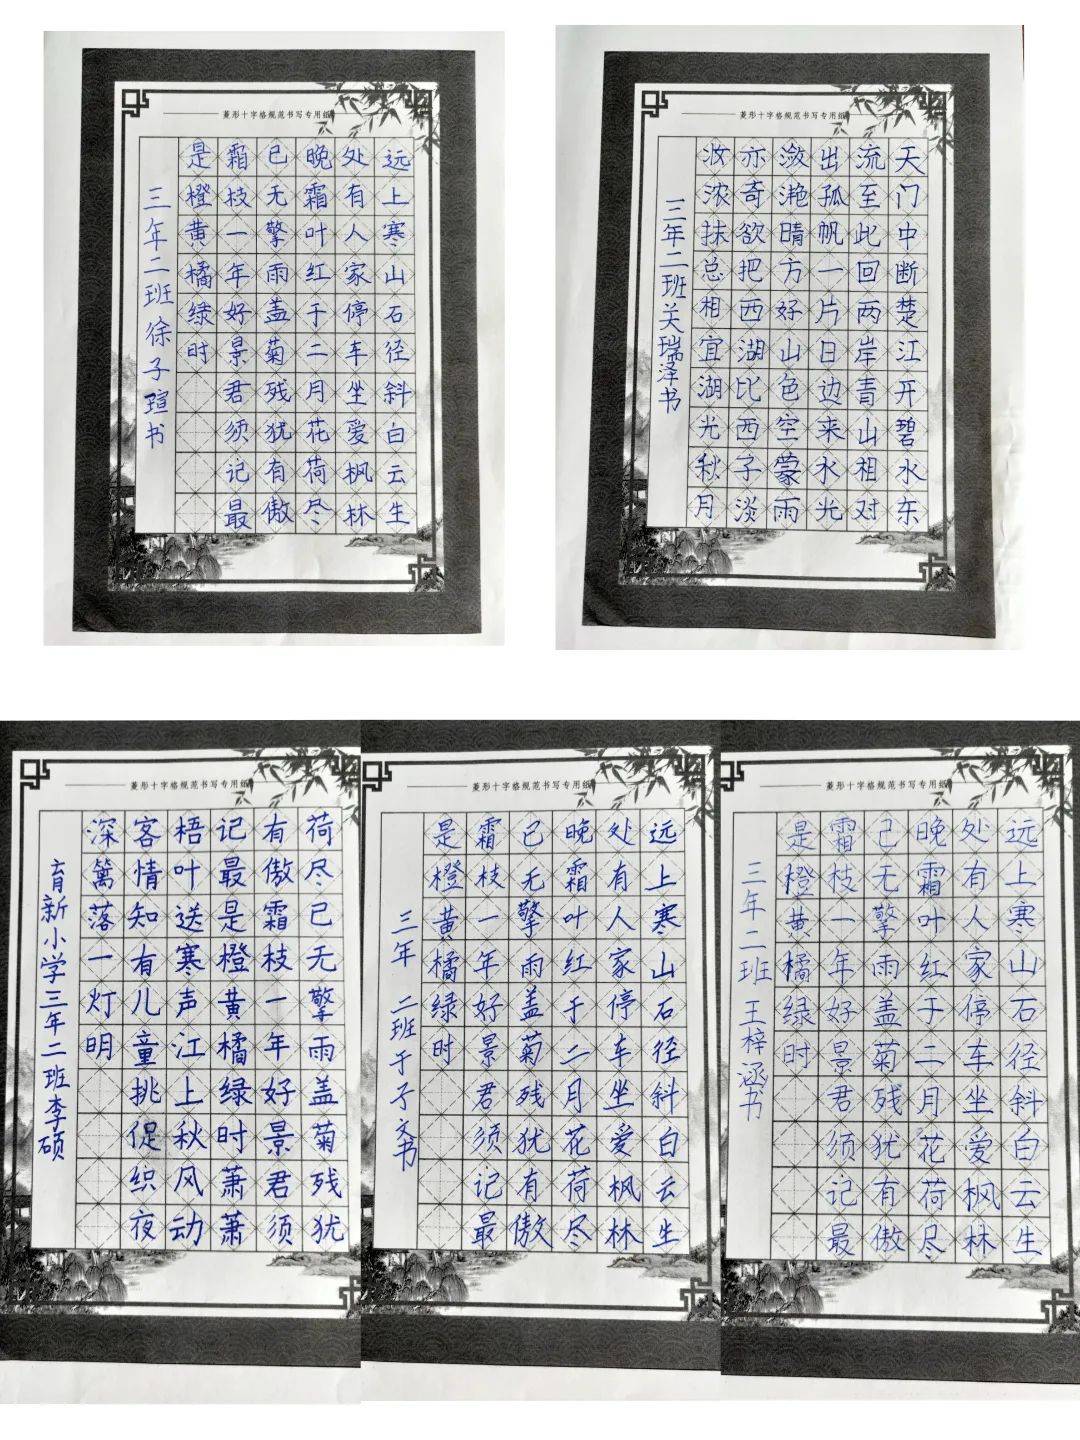 菱形十字格规范书写专用纸
远上寒山石径斜白云生
处有人家停车坐爱枫林
晚霜叶红于二月花荷尽
已无擎雨盖菊残犹有傲
霜枝一年好景君须记最
是橙黄橘绿时
三年二班徐子瑄书
菱形十字格规范书写专用纸
天门中断楚江开碧水东
流至此回两岸青山相对
出孤帆一片日边来水光
潋滟晴方好山色空蒙雨
亦奇欲把西湖比西子淡
妆浓抹总相宜湖光秋月
三年二班关瑞泽书
菱形十字格规范书写专用纸
荷尽已无擎雨盖菊残犹
有傲霜枝一年好景君须
记最是橙黄橘绿时萧萧
梧叶送寒声江上秋风动
客情知有儿童挑促织夜
深篱落一灯明
育新小学三年二班李硕
菱形十字格规范书写专用纸
远上寒山石径斜白云生
处有人家停车坐爱枫林
晚霜叶红于二月花荷尽
已无擎雨盖菊残犹有傲
霜枝一年好景君须记最
是橙黄橘绿时
三年 二班于子文书
菱形十字格规范书写专用纸
远上寒山石径斜白云生
处有人家停车坐爱枫林
晚霜叶红于二月花荷尽
已无擎雨盖菊残犹有傲
霜枝一年好景君须记最
是橙黄橘绿时
三年二班王梓涵书